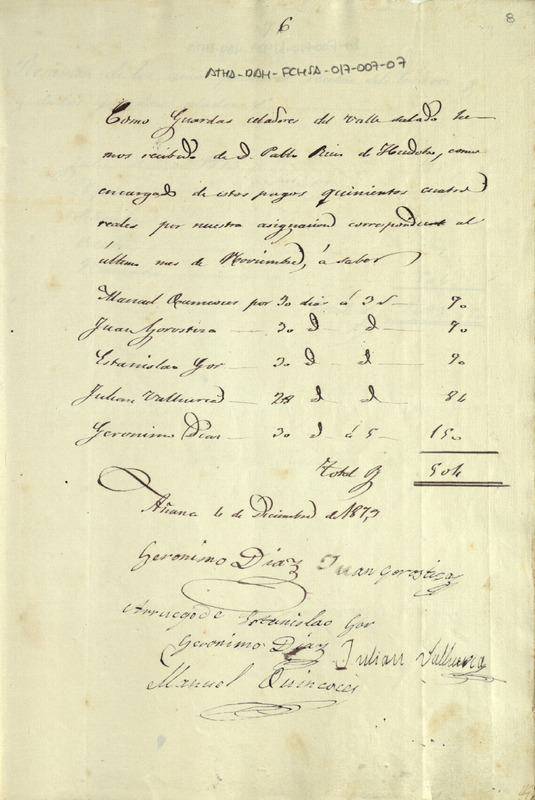 8
6
ATHA-DAH-FCHSA-017-007-07
Como Guardas celadores del Valle salado he-
mos recibido de D. Pablo Ruiz de Huidobro, como
encargado de estos pagos quinientos cuatro
reales por nuestra asignacion correspondiente al
último mes de Noviembre, á saber
Manuel Quincoces por 30 dias á 3 r 90
Juan Gorostiza 30 d d 90
Estanislao Gor 30 d d 90
Julian Valluerca 28 d d 84
Geronimo Diaz 30 d á 5 150
Total 504
Añana 4 de Diciembre de 1873
Geronimo Diaz Juan Gorostiza
Arruego de Estanislao Gor
Geronimo Diaz Julian Valluerca
Manuel Quincoces